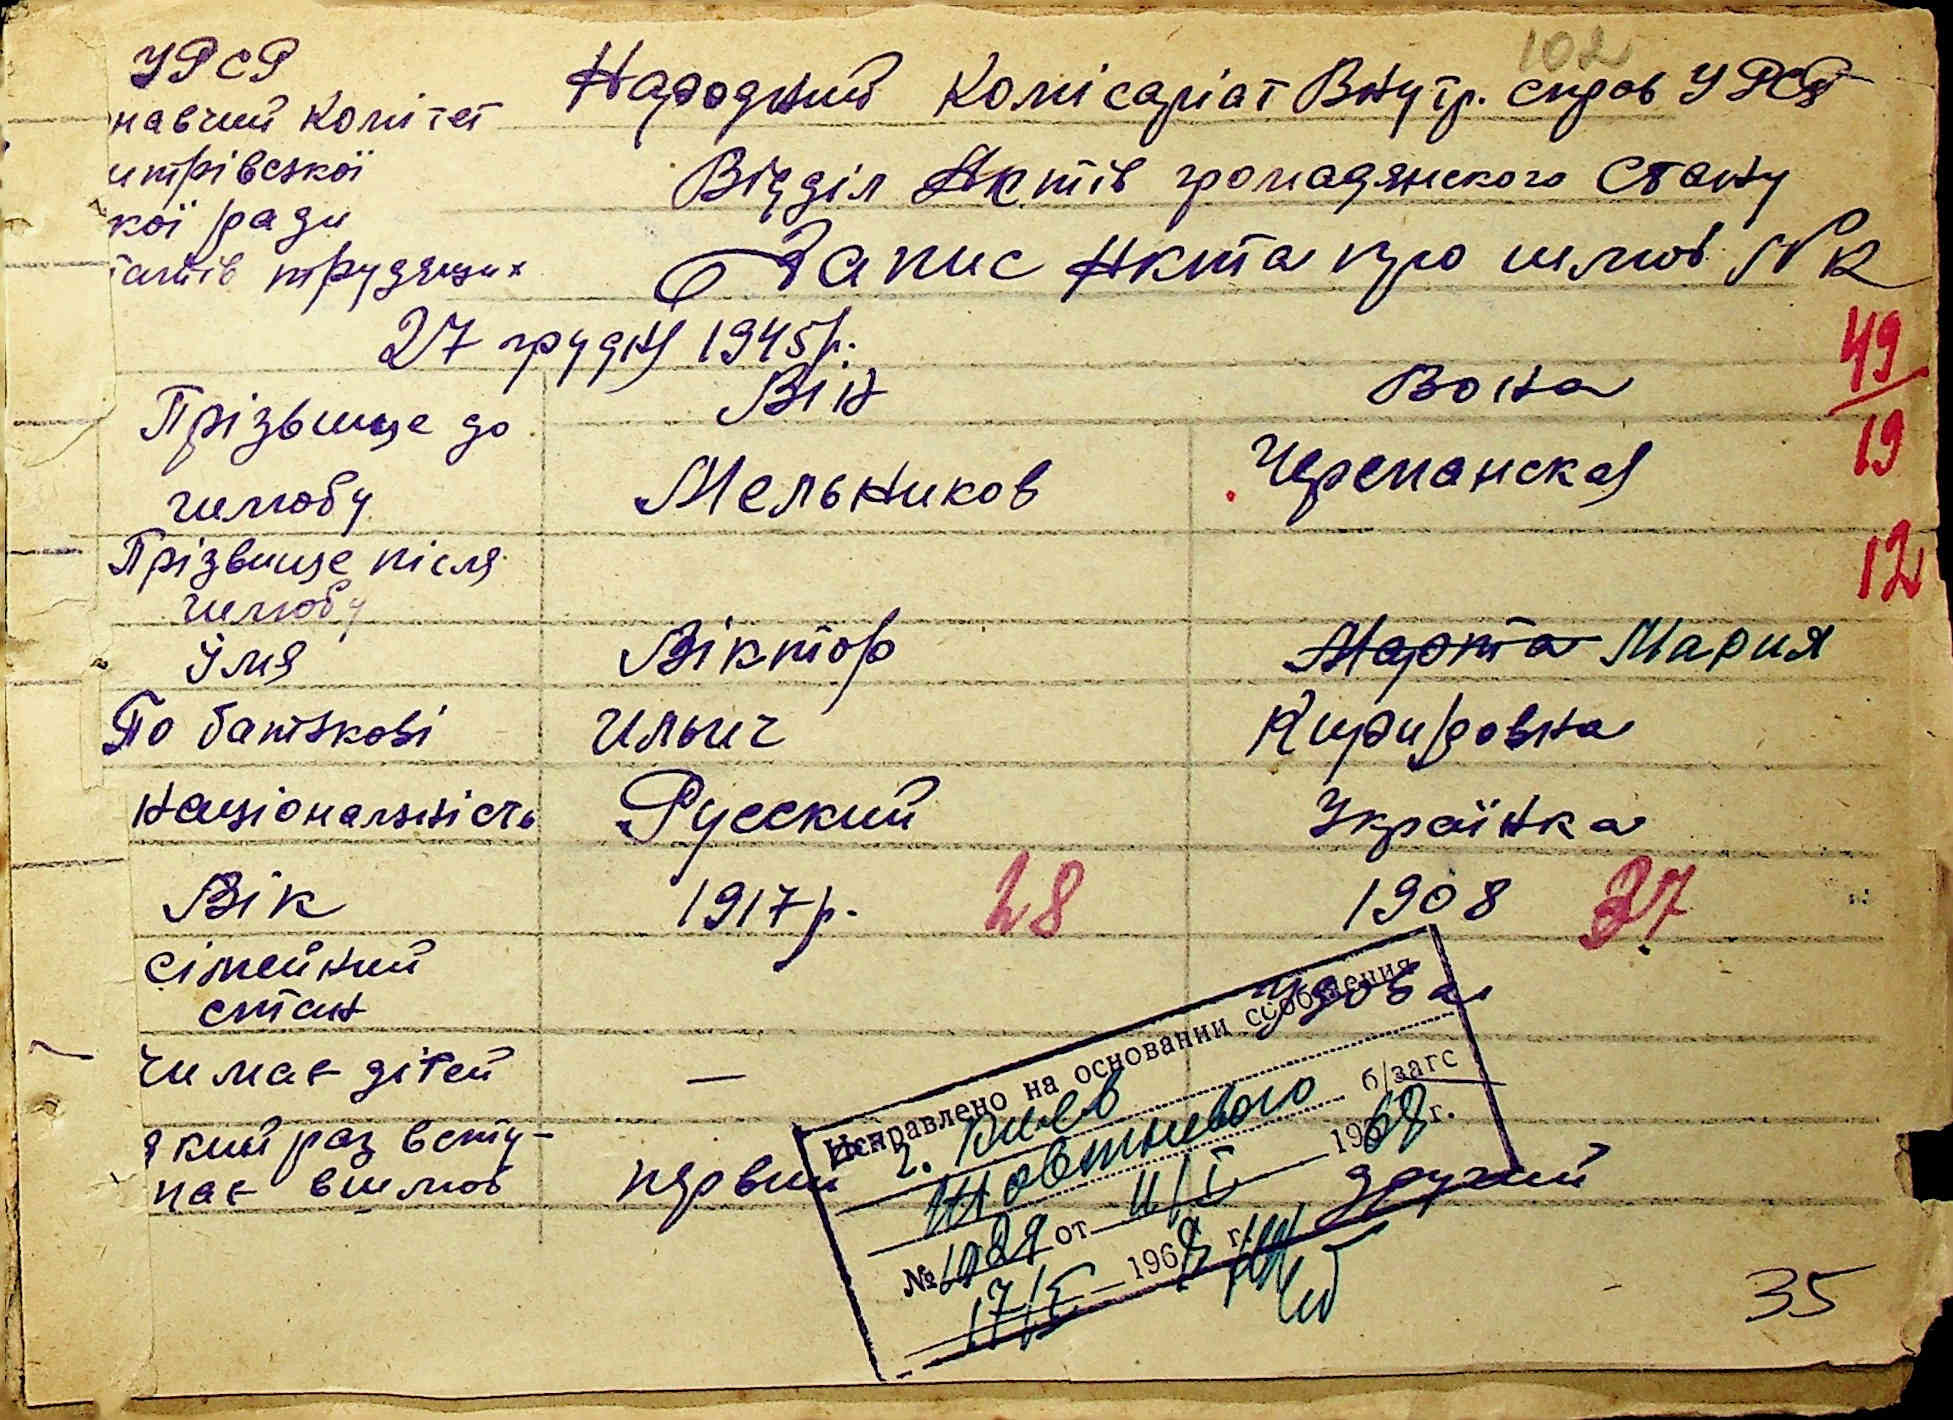 102
УРСР
навчий Комітет
Народний Комісаріат Внутр. справ УРСР
итрівської
Відділ Актів громадянского Стану
кої ради
татів трудящих
Запис Акта про шлюб №
27 грудня 1945р.
49
19
12
Він
Вона
Прізвище до шлюбу
Мельников
Черепанская
Прізвище після шлюбу
Імя
Віктор
Марта Мария
По батькові
Ильич
Кирировна
Національність
Русский
Українка
Вік
1917р.
28
1908
37
Сімейний стан
Удова
Чи має дітей
—
—
який раз всту-
пає вшлюб
первий
другий
Исправлено на основании сообщения
г. Киев
Жовтневого б/загс
№ 1089 от 11/I 1968 г.
17/I 1968 г.
35